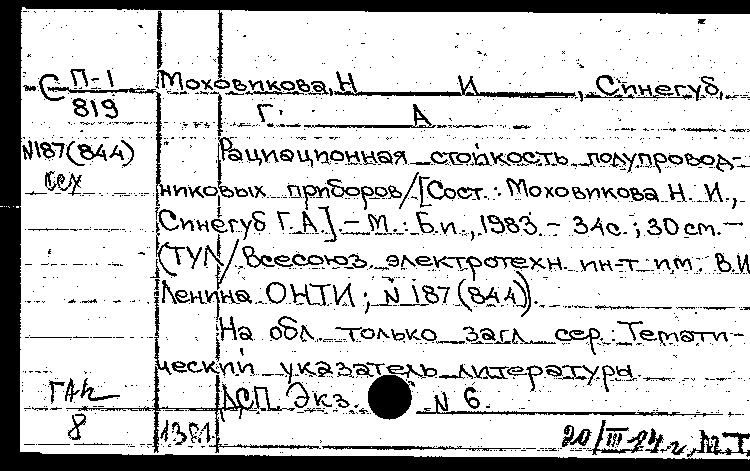 С П-1
819
Моховикова, Н И , Синегуб,
Г. А
N187(844)
сех
Рациационная стойкость полупровод-
никовых приборов/[Сост.: Моховикова Н. И.,
Синегуб Г.А.] – М.: Б.и., 1983. – 34с.; 30 см. –
(ТУЛ/Всесоюз. электротехн. ин-т им. В.И
Ленина ОНТИ; N 187(844)).
На обл. только загл. сер.: Темати-
ческий указатель литературы
ДСП. Экз. N 6.
8
1381
20/III 84 г., М.Т.